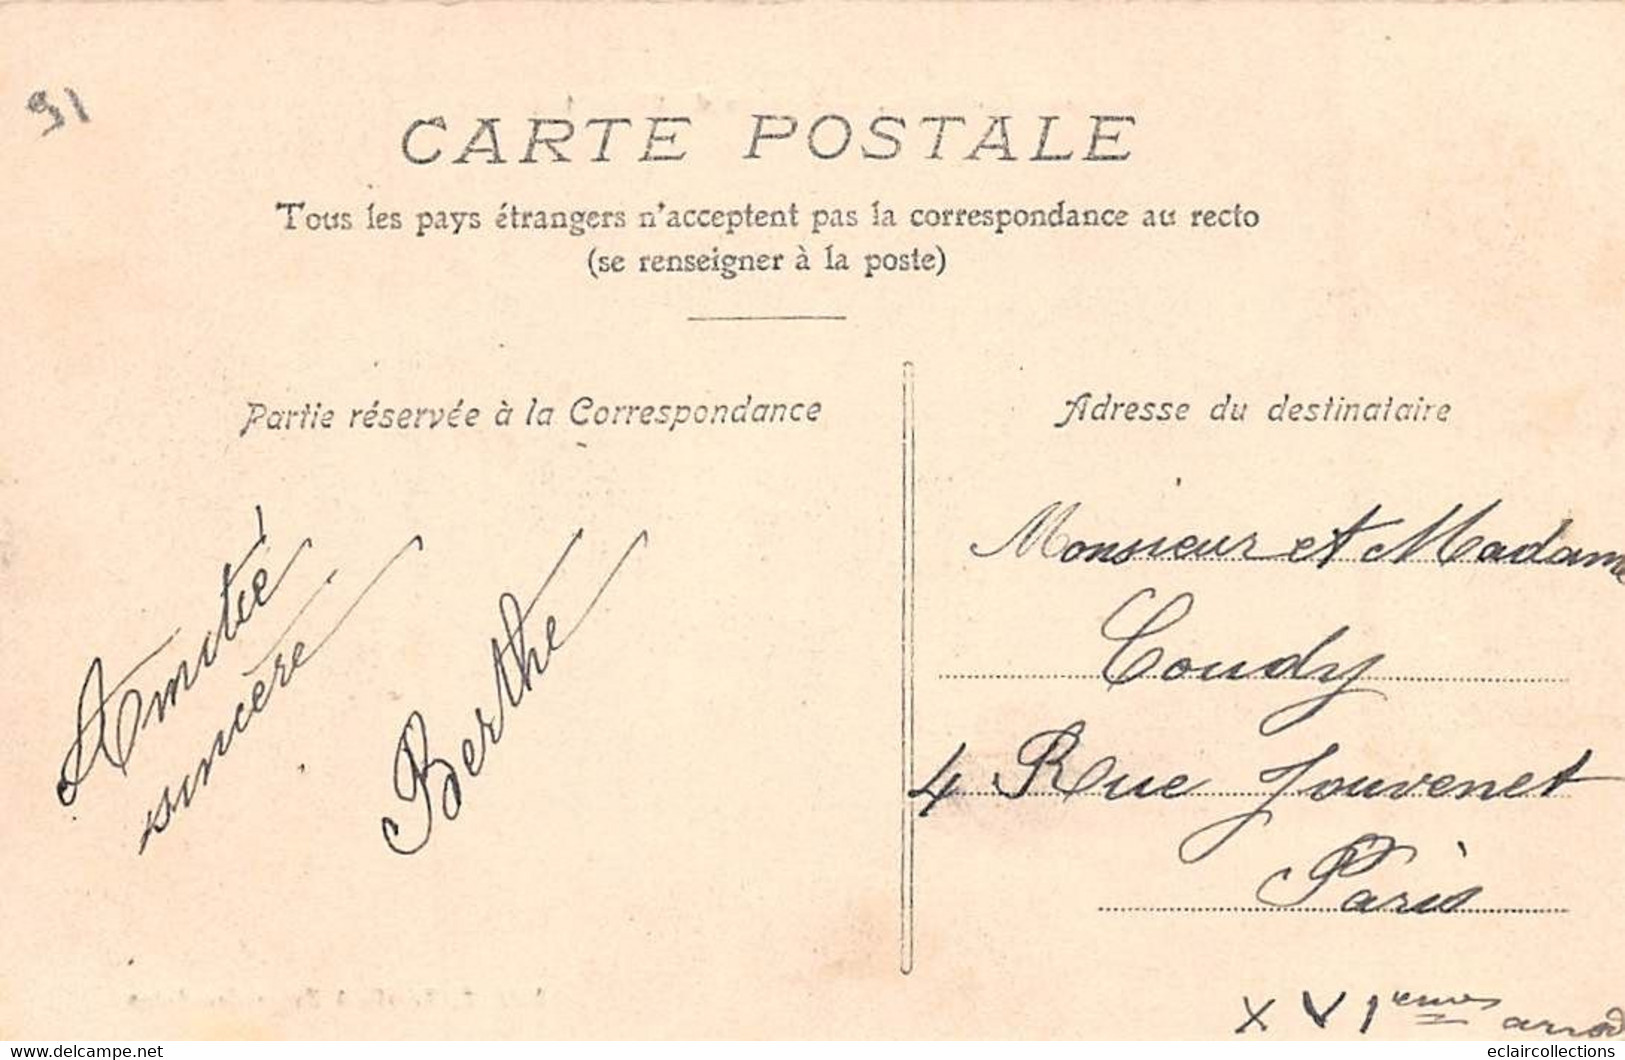 91
CARTE POSTALE
Tous les pays étrangers n'acceptent pas la correspondance au recto
(se renseigner à la poste)
Partie réservée à la Correspondance
Adresse du destinataire
Amitié
sincère
Berthe
Monsieur et Madame
Coudy
4 Rue Jouvenet
Paris
XVI
www.delcampe.net
eclaircollections